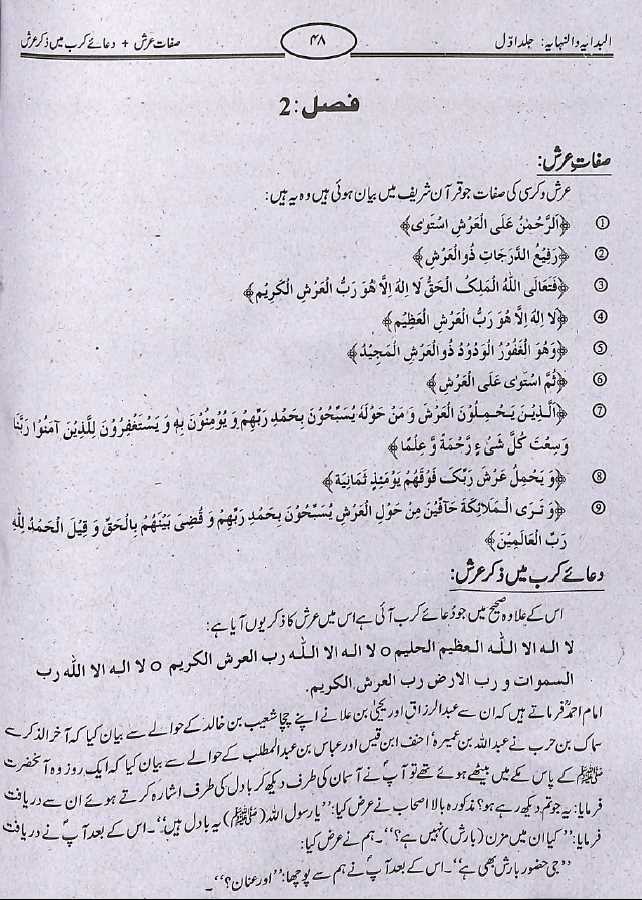 البدایہ والنہایہ: جلد اوّل
۴۸
صفات عرش + دعائے کرب میں ذکر عرش
فصل:2
صفاتِ عرش:
عرش و کرسی کی صفات جو قرآن شریف میں بیان ہوئی ہیں وہ یہ ہیں:
① ﴿اَلرَّحْمٰنُ عَلَى الْعَرْشِ اسْتَوٰى﴾
② ﴿رَفِيْعُ الدَّرَجَاتِ ذُوالْعَرْشِ﴾
③ ﴿فَتَعَالَى اللّٰهُ الْمَلِكُ الْحَقُّ لَا اِلٰهَ اِلَّا هُوَ رَبُّ الْعَرْشِ الْكَرِيْمِ﴾
④ ﴿لَا اِلٰهَ اِلَّا هُوَ رَبُّ الْعَرْشِ الْعَظِيْمِ﴾
⑤ ﴿وَهُوَ الْغَفُوْرُ الْوَدُوْدُ ذُوالْعَرْشِ الْمَجِيْدُ﴾
⑥ ﴿ثُمَّ اسْتَوٰى عَلَى الْعَرْشِ﴾
⑦ ﴿اَلَّذِيْنَ يَحْمِلُوْنَ الْعَرْشَ وَ مَنْ حَوْلَهٗ يُسَبِّحُوْنَ بِحَمْدِ رَبِّهِمْ وَ يُوْمِنُوْنَ بِهٖ وَ يَسْتَغْفِرُوْنَ لِلَّذِيْنَ آمَنُوْا رَبَّنَا
وَسِعْتَ كُلَّ شَىْءٍ رَّحْمَةً وَّ عِلْمًا﴾
⑧ ﴿وَ يَحْمِلُ عَرْشَ رَبِّكَ فَوْقَهُمْ يَوْمَئِذٍ ثَمَانِيَةٌ﴾
⑨ ﴿وَ تَرَى الْمَلَائِكَةَ حَآفِّيْنَ مِنْ حَوْلِ الْعَرْشِ يُسَبِّحُوْنَ بِحَمْدِ رَبِّهِمْ وَ قُضِىَ بَيْنَهُمْ بِالْحَقِّ وَ قِيْلَ الْحَمْدُ لِلّٰهِ
رَبِّ الْعَالَمِيْنَ﴾
دعائے کرب میں ذکر عرش:
اس کے علاوہ صحیح میں جو دُعائے کرب آئی ہے اس میں عرش کا ذکر یوں آیا ہے:
لا اله الا الله العظيم الحليم o لا اله الا الله رب العرش الكريم o لا اله الا الله رب
السموات و رب الارض رب العرش الكريم.
امام احمدؒ فرماتے ہیں کہ ان سے عبدالرزاق اور یحییٰ بن علا نے اپنے چچا شعیب بن خالد کے حوالے سے بیان کیا کہ آخر الذکر سے
سماک بن حرب نے عبداللہ بن عمیرہ' احنف ابن قیس اور عباس بن عبدالمطلب کے حوالے سے بیان کیا کہ ایک روز وہ آنحضرت
ﷺ کے پاس مکے میں بیٹھے ہوئے تھے تو آپؐ نے آسمان کی طرف دیکھ کر بادل کی طرف اشارہ کرتے ہوئے ان سے دریافت
فرمایا: یہ جو تم دیکھ رہے ہو؟ مذکورہ بالا اصحاب نے عرض کیا: ''یا رسول اللہ (ﷺ) یہ بادل ہیں''۔ اس کے بعد آپؐ نے دریافت
فرمایا: ''کیا ان میں مزن (بارش) نہیں ہے؟''۔ ہم نے عرض کیا:
''جی حضور بارش بھی ہے''۔ اس کے بعد آپؐ نے ہم سے پوچھا: ''اور عنان؟''۔